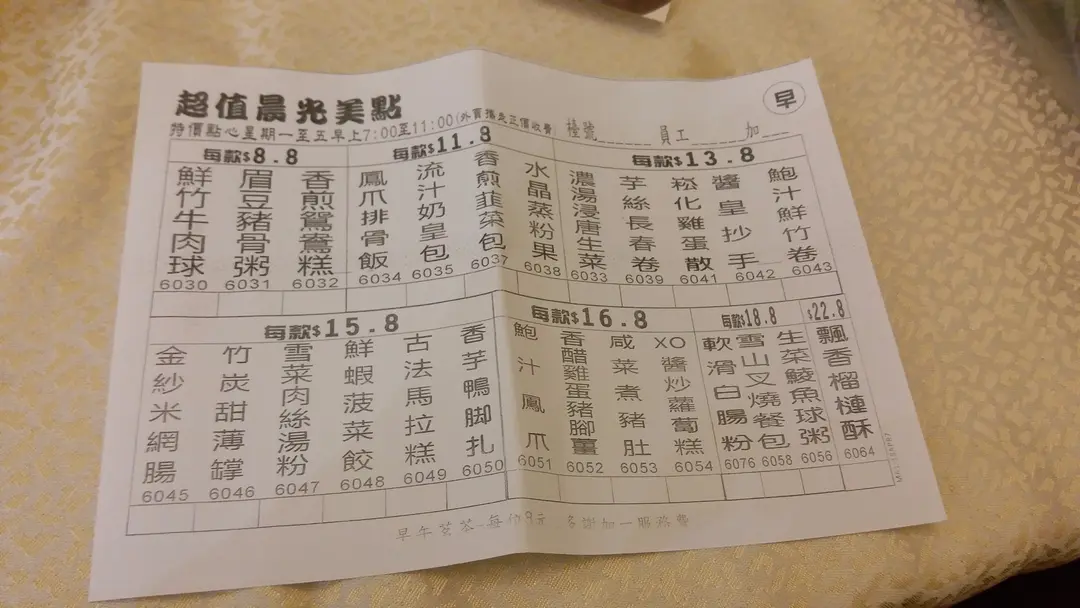 超值晨光美點
早
特價點心星期一至五早上7:00至11:00(外賣攜走正價收費) 檯號______ 員工______ 加___
每款$8.8
鮮竹牛肉球 6030
眉豆豬骨粥 6031
香煎鴛鴦糕 6032
每款$11.8
鳳爪排骨飯 6034
流汁奶皇包 6035
香煎韮菜包 6037
水晶蒸粉果 6038
每款$13.8
濃湯浸唐生菜 6033
芋絲長春卷 6039
崧化雞蛋散 6041
醬皇抄手 6042
鮑汁鮮竹卷 6043
每款$15.8
金紗米網腸 6045
竹炭甜薄罉 6046
雪菜肉絲湯粉 6047
鮮蝦菠菜餃 6048
古法馬拉糕 6049
香芋鴨脚扎 6050
每款$16.8
鮑汁鳳爪 6051
香醋雞蛋豬腳薑 6052
咸菜煮豬肚 6053
XO醬炒蘿蔔糕 6054
每款$18.8
軟滑白腸粉 6076
雪山叉燒餐包 6058
生菜鯪魚球粥 6056
$22.8
飄香榴槤酥 6064
早午茗茶-每位8元 多謝加一服務費